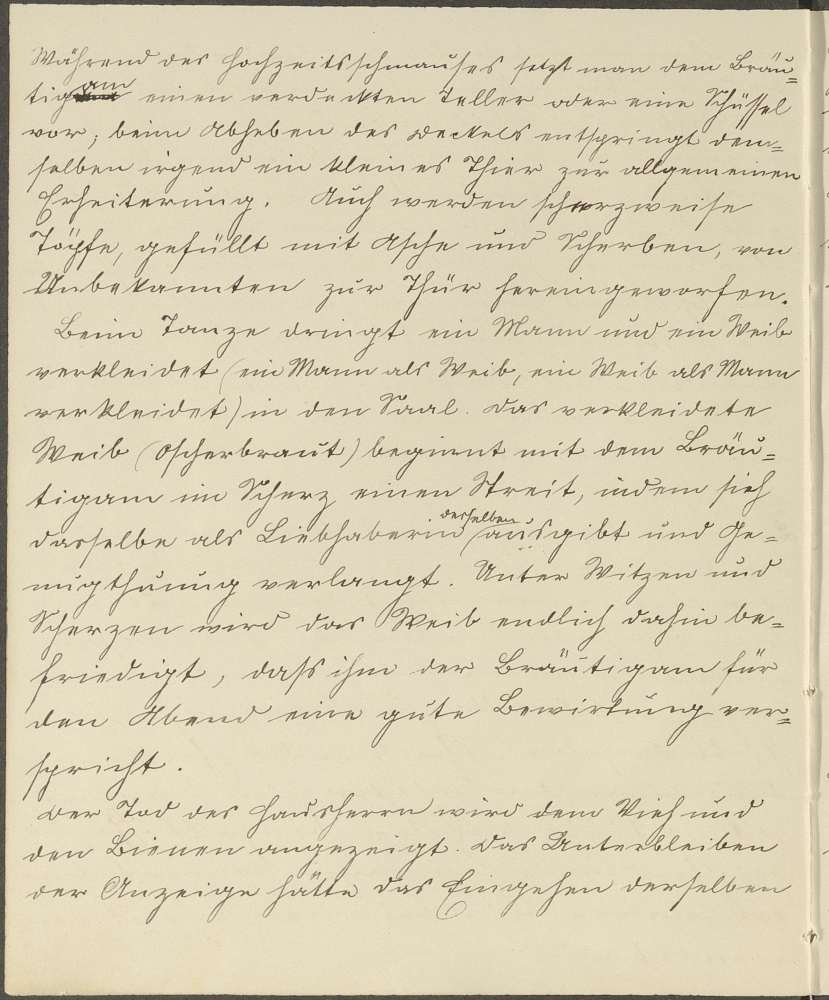 Während des Hochzeitsschmauses setzt man dem Bräu=
tigam einen verdeckten Teller oder eine Schüssel
vor; beim Abheben des Deckels entspringt dem=
selben irgend ein kleines Thier zur allgemeinen
Erheiterung. Auch werden scherzweise
Töpfe, gefüllt mit Asche und Scherben, von
Unbekannten zur Thür hereingeworfen.
Beim Tanze dringt ein Mann und ein Weib
verkleidet (ein Mann als Weib, ein Weib als Mann
verkleidet) in den Saal. Das verkleidete
Weib (Oscherbraut) beginnt mit dem Bräu=
tigam im Scherz einen Streit, indem sich
dasselbe als Liebhaberin desselben ausgibt und Ge=
nugthuung verlangt. Unter Witzen und
Scherzen wird das Weib endlich dahin be=
friedigt, dass ihm der Bräutigam für
den Abend eine gute Bewirtung ver=
spricht.
Der Tod des Hausherrn wird dem Vieh und
den Bienen angezeigt. Das Unterbleiben
der Anzeige hätte das Eingehen derselben